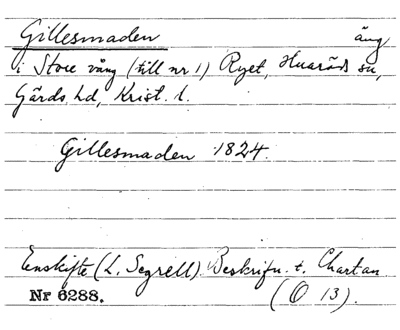 Gillesmaden äng
i Store vång (till nr 1) Ryet, Huaröds sn,
Gärds hd, Krist. l.
Gillesmaden 1824.
Enskifte (L. Segrell). Beskrifn. t. Chartan
Nr 6288. (O 13).